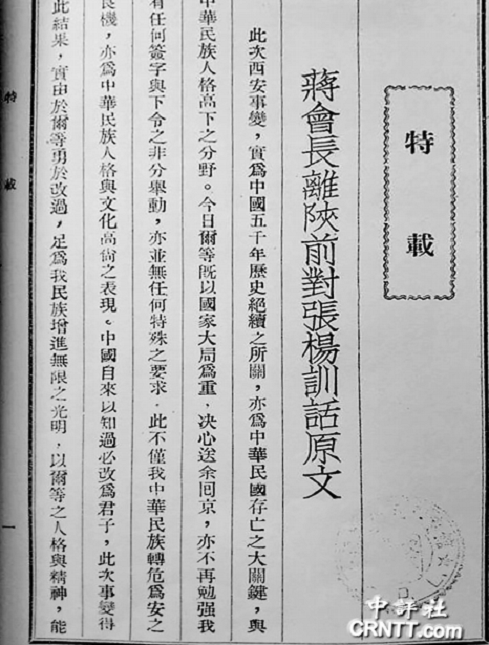 特載
蔣會長離陝前對張楊訓話原文
此次西安事變，實爲中國五千年歷史絕續之所關，亦爲中華民國存亡之大關鍵，與
中華民族人格高下之分野。今日爾等既以國家大局爲重，决心送余回京，亦不再勉强我
有任何簽字與下令之非分舉動，亦並無任何特殊之要求，此不僅我中華民族轉危爲安之
良機，亦爲中華民族人格與文化高尙之表現。中國自來以知過必改爲君子，此次事變得
此結果，實由於爾等勇於改過，足爲我民族增進無限之光明，以爾等之人格與精神，能
特載
一
中評社
CRNTT.com